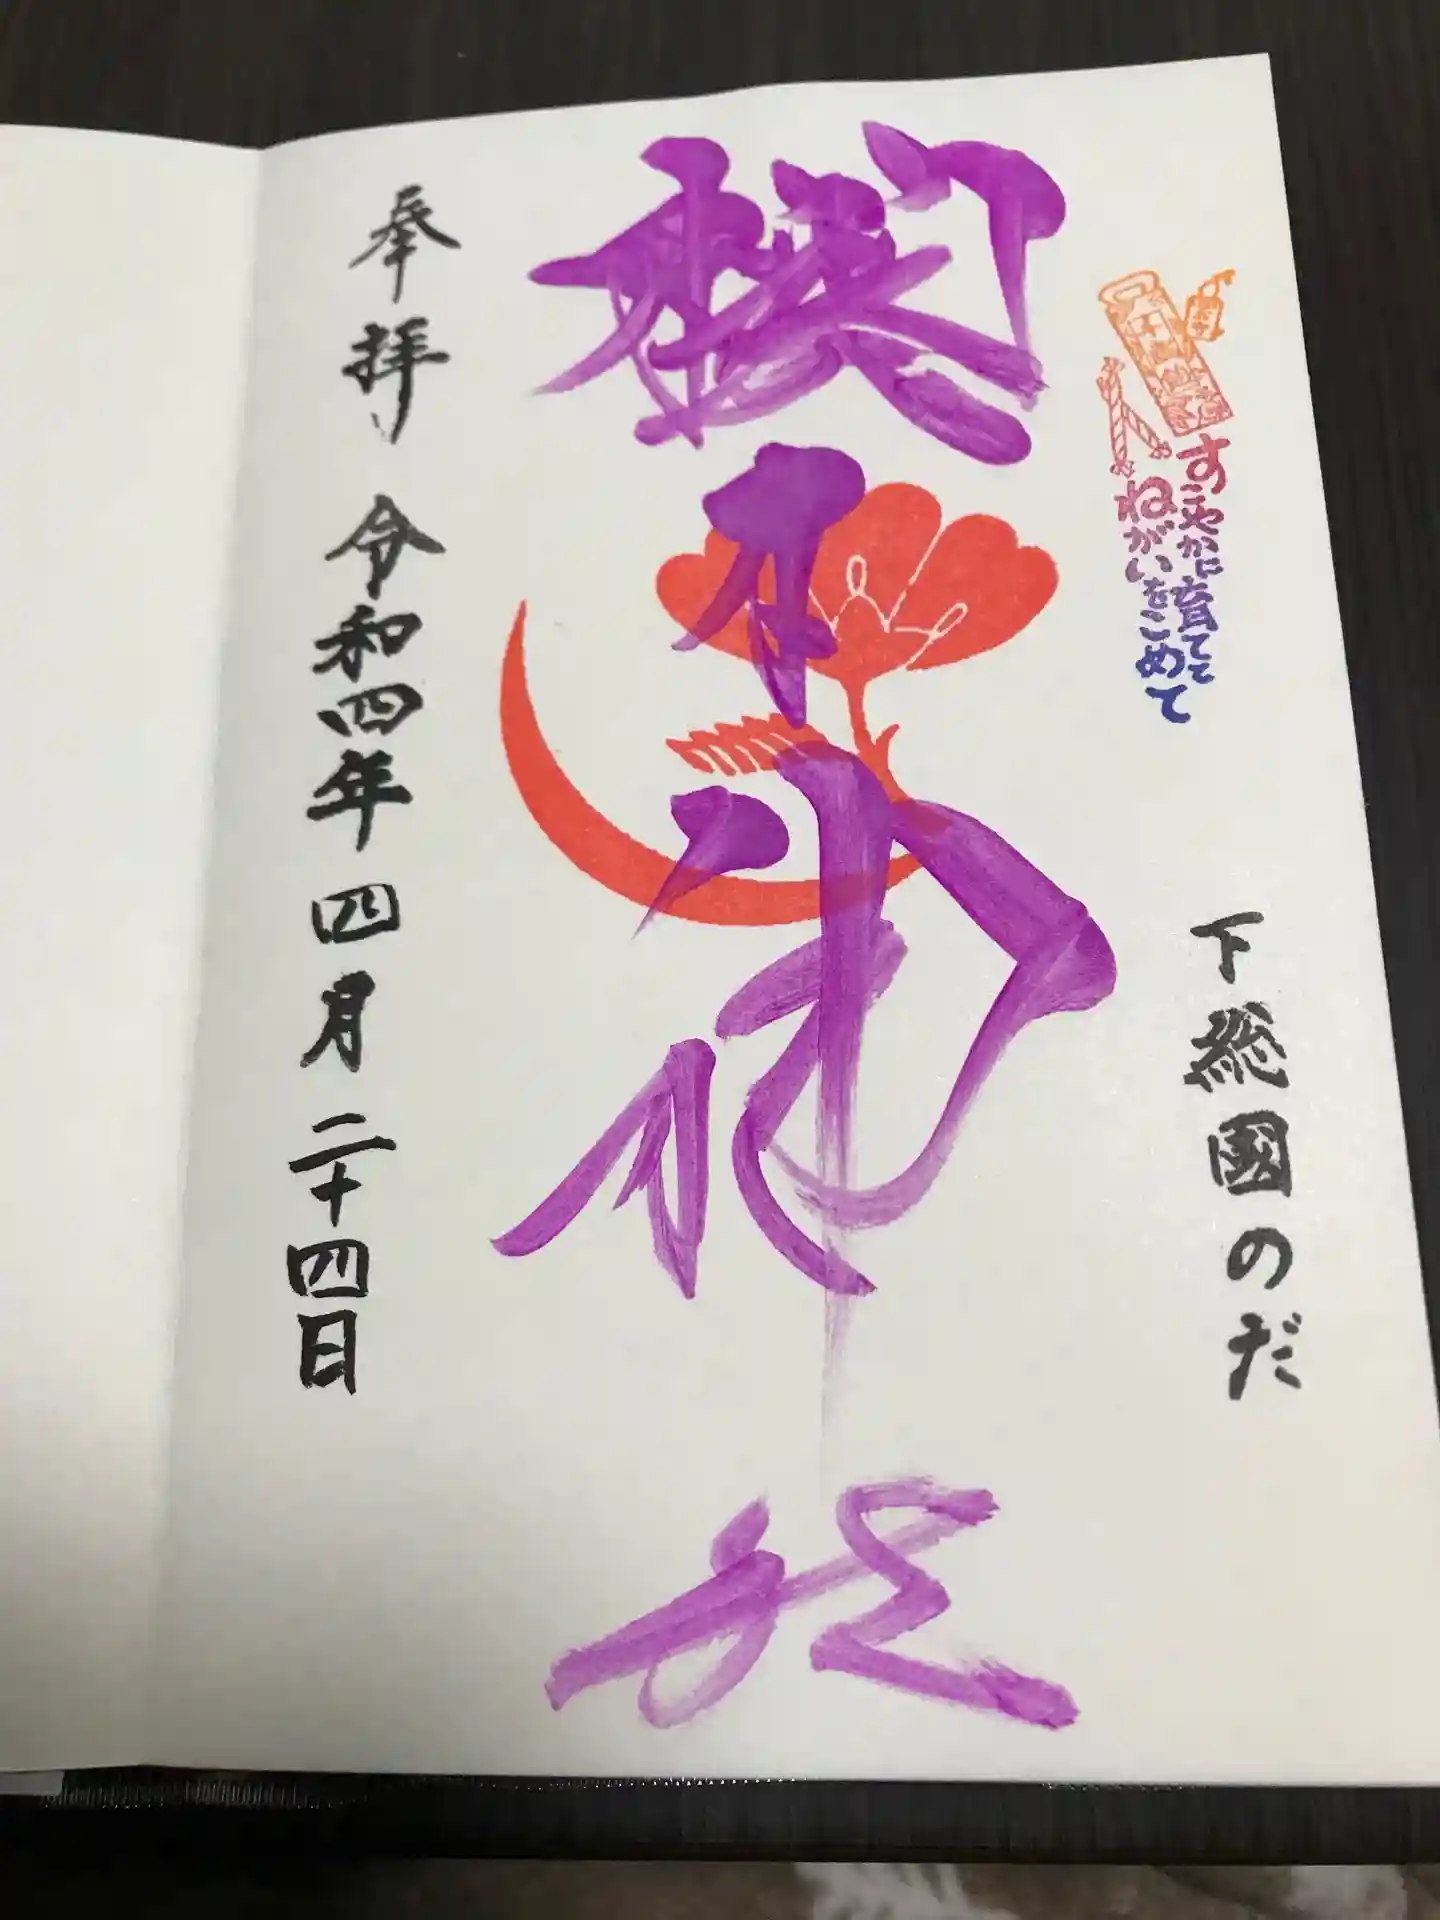 すこやかに育てて
ねがいをこめて
下総國のだ
櫻木神社
奉拝 令和四年四月二十四日